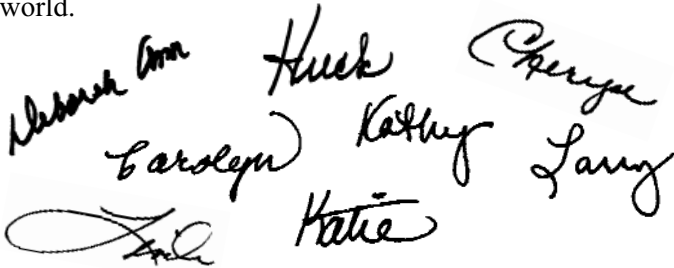 world.
Deborah Ann
Huck
Cheryl
Carolyn
Kathy
Larry
Katie